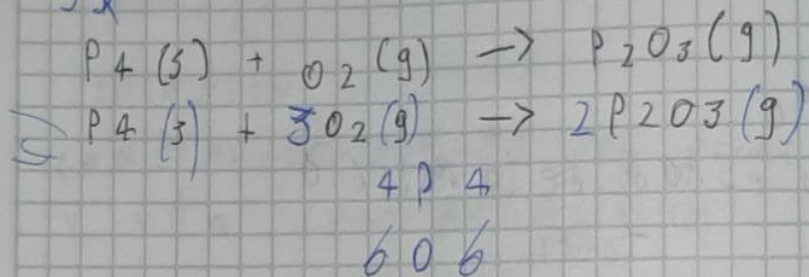 P4 (s) + O2 (g) -> P2O3 (g)
P4 (s) + 3O2 (g) -> 2P2O3 (g)
4 P 4
6 O 6